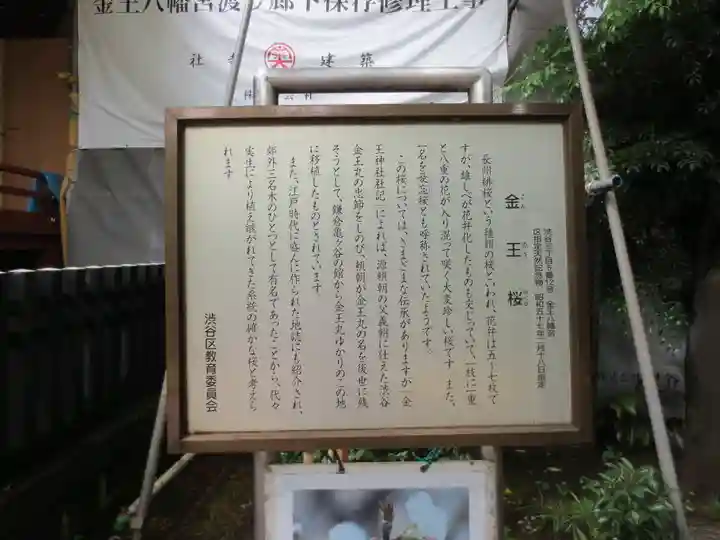 金王八幡宮渡り廊下保存修理工事
社寺建築
渋谷三丁目5番12号 金王八幡宮
区指定天然記念物 昭和五十七年二月十八日指定
金王桜
こん のう ざくら
長州緋桜という種類の桜といわれ、花弁は五〜七枚で
すが、雄しべが花弁化したものも交じっていて、一枝に一重
と八重の花が入り混って咲く大変珍しい桜です また、
一名を長忘桜とも呼称されていたようです。
この桜については、さまざまな伝承がありますが「金
王神社社記」によれば、源頼朝の父義朝に仕えた渋谷
金王丸の忠節をしのび、頼朝が金王丸の名を後世に残
そうとして、鎌倉亀ヶ谷の館から金王丸ゆかりのこの地
に移植したものとされています
また、江戸時代に盛んに作られた地誌にも紹介され、
郊外三名木のひとつとして有名であったことから、代々
実生により植え継がれてきた系統の確かな桜と考えら
れます
渋谷区教育委員会